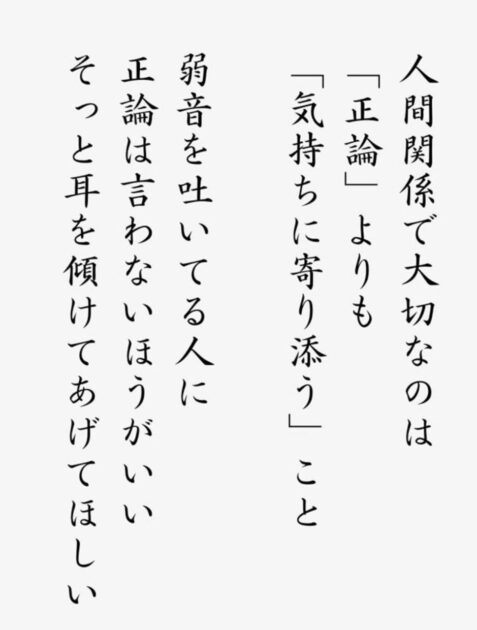 人間関係で大切なのは
「正論」よりも
「気持ちに寄り添う」こと
弱音を吐いてる人に
正論は言わないほうがいい
そっと耳を傾けてあげてほしい